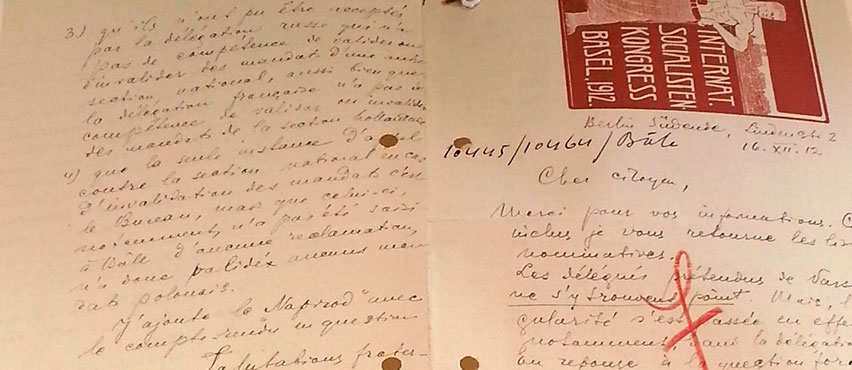 3.) qu'ils n'ont pu être acceptés
par la délégation russe qui n'a
pas de compétence de valider ou
d'invalider des mandats d'une autre
section national, aussi bien que
la délégation française n'a pas la
compétence de valider ou invalider
des mandats de la section hollandaise
4) que la seule instance d'appel
contre la section national en cas
d'invalidation des mandats c'est
le Bureau, mais que celui-ci,
notamment, n'a pas été saisi
à Bâle d'aucune reclamation,
n'a donc validé aucuns man-
dats polonais.
J'ajoute le „Naprzod" avec
le compte-rendu en question
Salutations frater-
INTERNAT.
SOCIALISTEN
KONGRESS
BASEL, 1912.
Berlin Südende, Lindenstr 2
16. XII. 12
10445/10464/Bâle
Cher citoyen,
Merci pour vos informations. C
inclus je vous retourne les lis
nominatives.
Les délégués prétendus de Vars
ne s'y trouvent point. Mais, l
gularité s'est passée en effe
notamment dans la délégation
en réponse à la question for